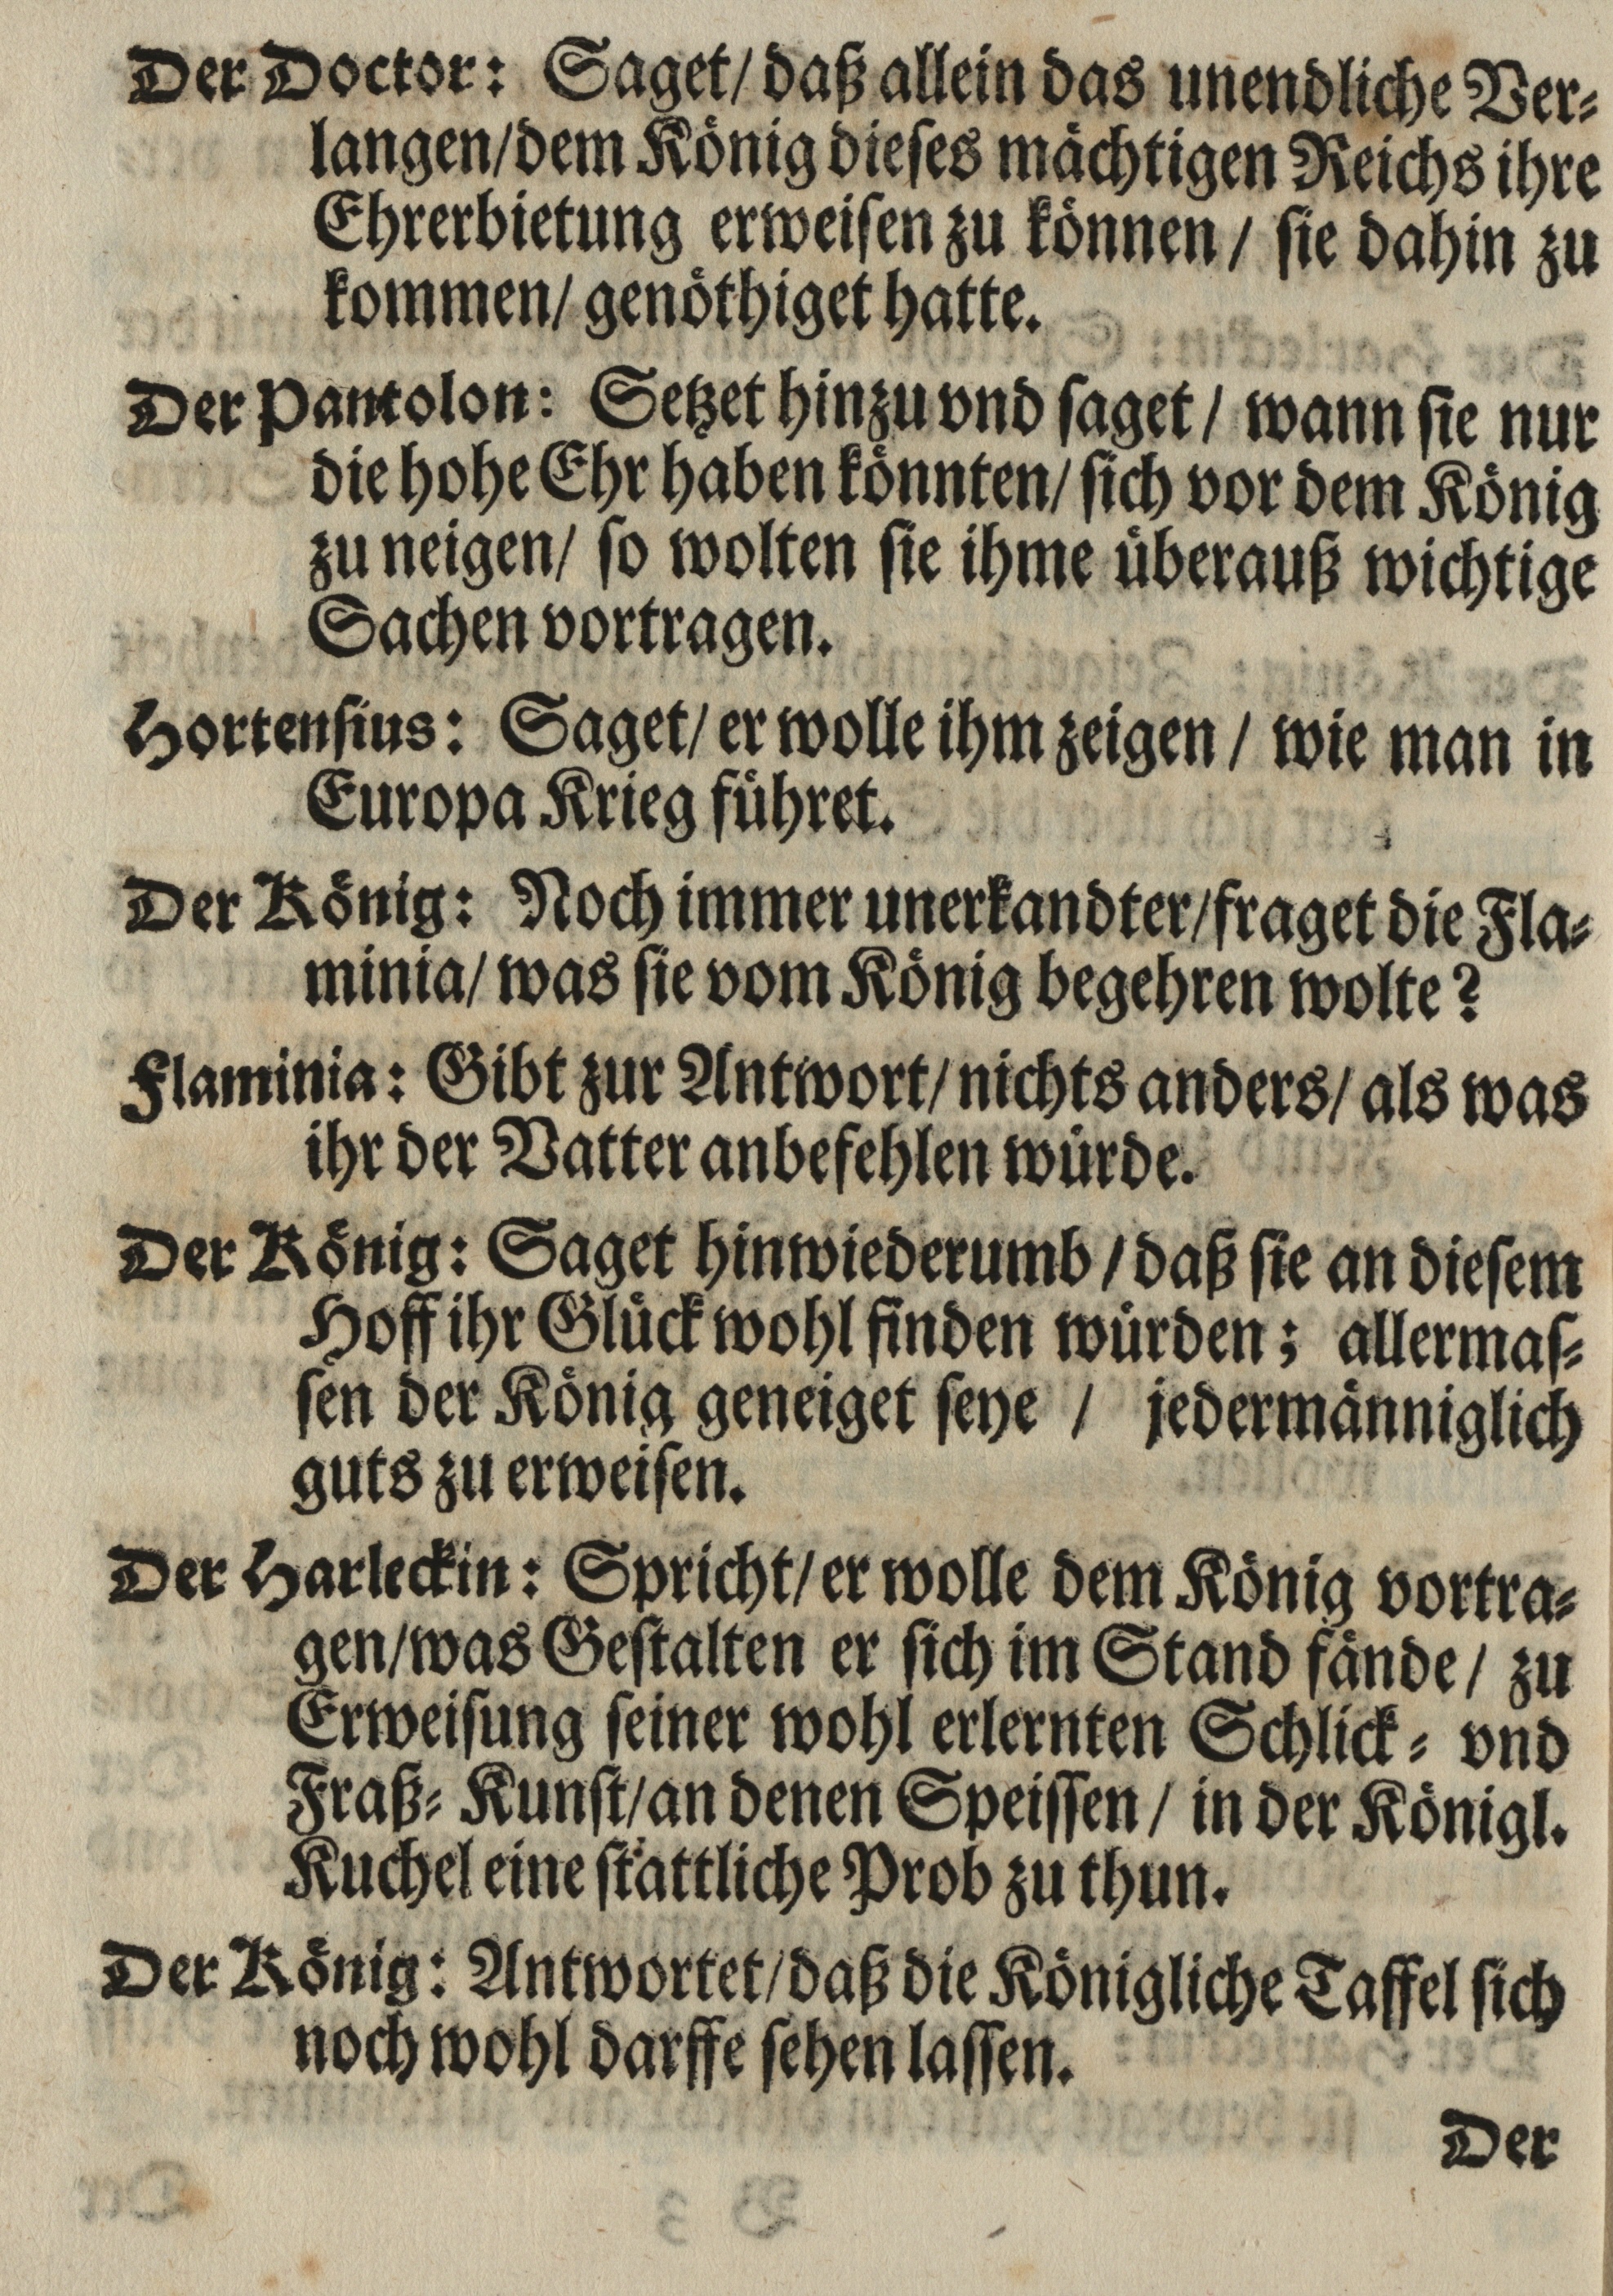 Der Doctor: Saget/ daß allein das unendliche Ver-
langen/dem König dieses mächtigen Reichs ihre
Ehrerbietung erweisen zu können/ sie dahin zu
kommen/ genöthiget hatte.
Der Pantolon: Setzet hinzu vnd saget/ wann sie nur
die hohe Ehr haben könnten/ sich vor dem König
zu neigen/ so wolten sie ihme überauß wichtige
Sachen vortragen.
Hortensius: Saget/ er wolle ihm zeigen/ wie man in
Europa Krieg führet.
Der König: Noch immer unerkandter/fraget die Fla-
minia/ was sie vom König begehren wolte?
Flaminia: Gibt zur Antwort/ nichts anders/ als was
ihr der Vatter anbefehlen würde.
Der König: Saget hinwiederumb/daß sie an diesem
Hoff ihr Glück wohl finden würden; allermas-
sen der König geneiget seye / jedermänniglich
guts zu erweisen.
Der Harleckin: Spricht/er wolle dem König vortra-
gen/was Gestalten er sich im Stand fände/ zu
Erweisung seiner wohl erlernten Schlick- vnd
Fraß-Kunst/an denen Speissen/ in der Königl.
Kuchel eine stattliche Prob zu thun.
Der König: Antwortet/daß die Königliche Taffel sich
noch wohl darffe sehen lassen.
Der